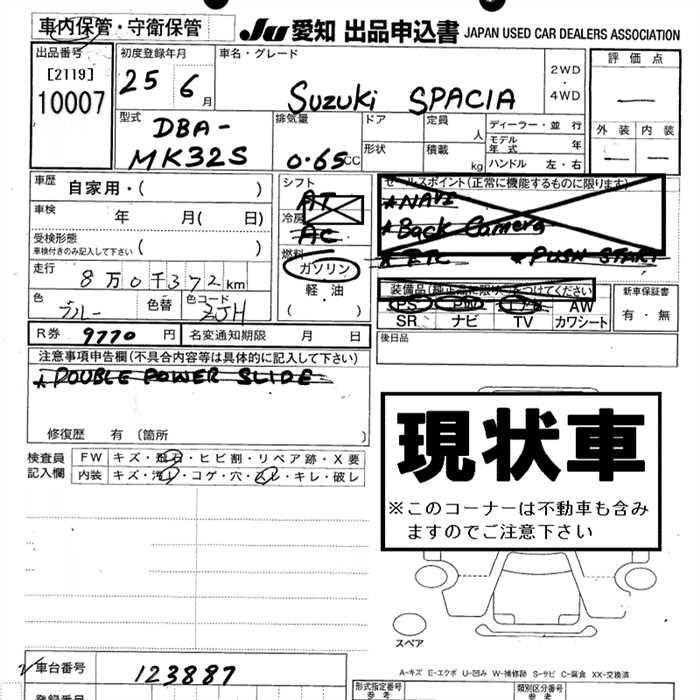 車内保管・守衛保管
JU 愛知 出品申込書 JAPAN USED CAR DEALERS ASSOCIATION
出品番号
[2119]
10007
初度登録年月
25 6月
車名・グレード
Suzuki SPACIA
2WD
・
4WD
評価点
—
外装 内装
— —
型式
DBA-
MK32S
排気量
0.65CC
ドア
定員
人
形状
積載
kg
ディーラー・並行
モデル年式 年
ハンドル 左・右
車歴 自家用・( )
車検 年 月( 日)
受検形態
車検付きのみ記入して下さい ( )
走行 8万0千372km
色 ブルー 色替 色コード ZJH
シフト
AT
冷房
AC
燃料
ガソリン
軽・油
( )
セールスポイント(正常に機能するものに限ります)
★NAVI
★Back Camera
★ETC ★PUSH START
装備品(純正品に限り○をつけてください)
PS PW エアB AW
SR ナビ TV カワシート
新車保証書
有・無
R券 9770円 名変通知期限 月 日
後日品
注意事項申告欄(不具合内容等は具体的に記入して下さい)
★DOUBLE POWER SLIDE
修復歴 有 (箇所 )
検査員記入欄
FW キズ・飛石・ヒビ割・リペア跡・X要
内装 キズ・汚れ・コゲ・穴・スレ・キレ・破レ
現状車
※このコーナーは不動車も含み
ますのでご注意下さい
スペア
A-キズ E-エクボ U-凹み W-補修跡 S-サビ C-腐食 XX-交換済
車台番号 123887
登録番号
型式指定番号
参考
類別区分番号
参考